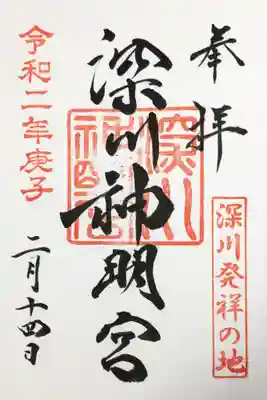 奉拝
深川発祥の地
深川神明宮
深川
神明宮
令和二年庚子
二月十四日